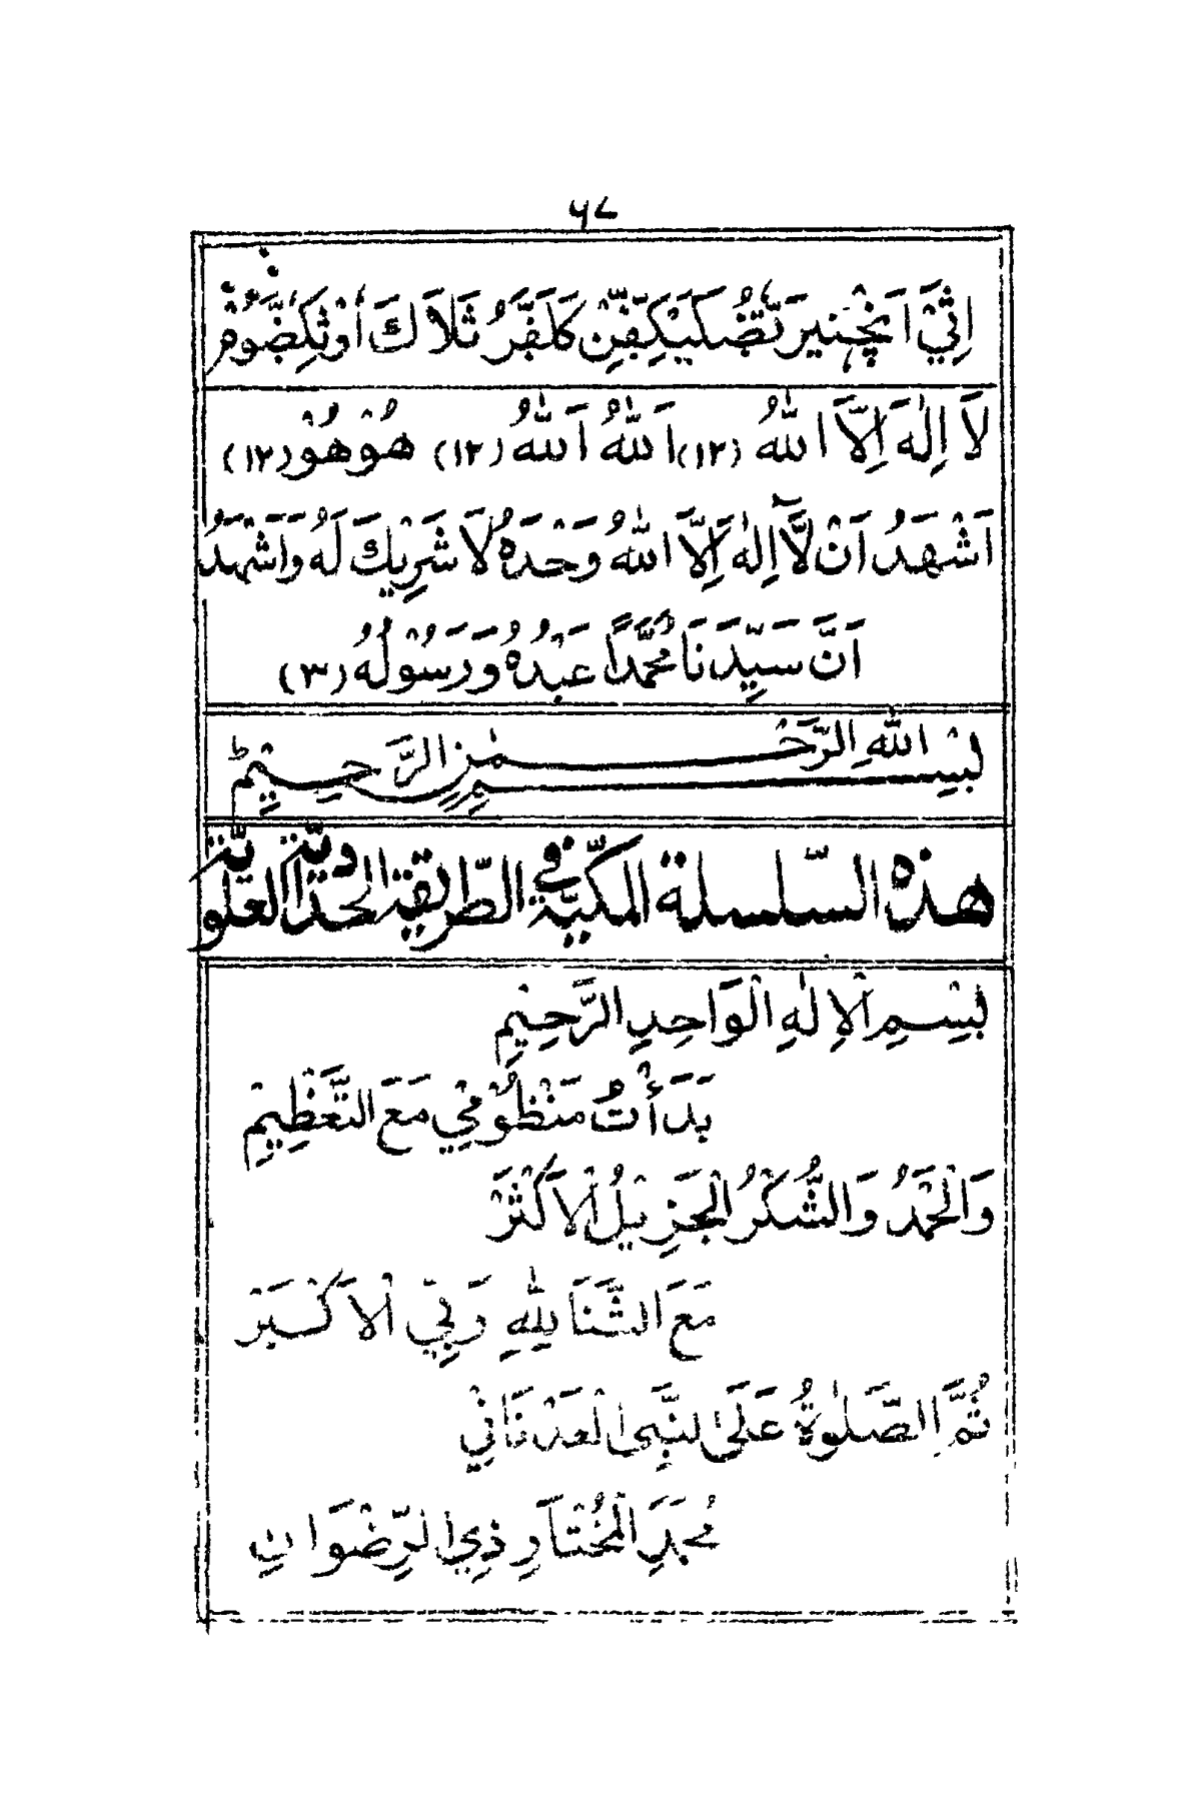 لَا اِلٰهَ اِلَّا اللّٰهُ (١٢) اَللّٰهُ اَللّٰهُ (١٢) هُوْهُوْ (١٢)
اَشْهَدُ اَنْ لَّآ اِلٰهَ اِلَّا اللّٰهُ وَحْدَهٗ لَا شَرِيْكَ لَهٗ وَاَشْهَدُ
اَنَّ سَيِّدَنَا مُحَمَّدًا عَبْدُهٗ وَرَسُوْلُهٗ (٣)
بِسْمِ اللّٰهِ الرَّحْمٰنِ الرَّحِيْمِ ط
هذه السّلسلة المكّيّة في الطّريقة الحدّاديّة العلويّة
بِسْمِ الْاِلٰهِ الْوَاحِدِ الرَّحِيْمِ
بَدَأْتُ مَنْظُوْمِي مَعَ التَّعْظِيْمِ
وَالْحَمْدُ وَالشُّكْرُ الْجَزِيْلُ الْاَكْثَرْ
مَعَ الثَّنَا لِلّٰهِ رَبِّي الْاَكْبَرْ
ثُمَّ الصَّلٰوةُ عَلَى النَّبِى الْعَدْنَانِيْ
مُحَمَّدِ الْمُخْتَارِ ذِي الرِّضْوَانِ